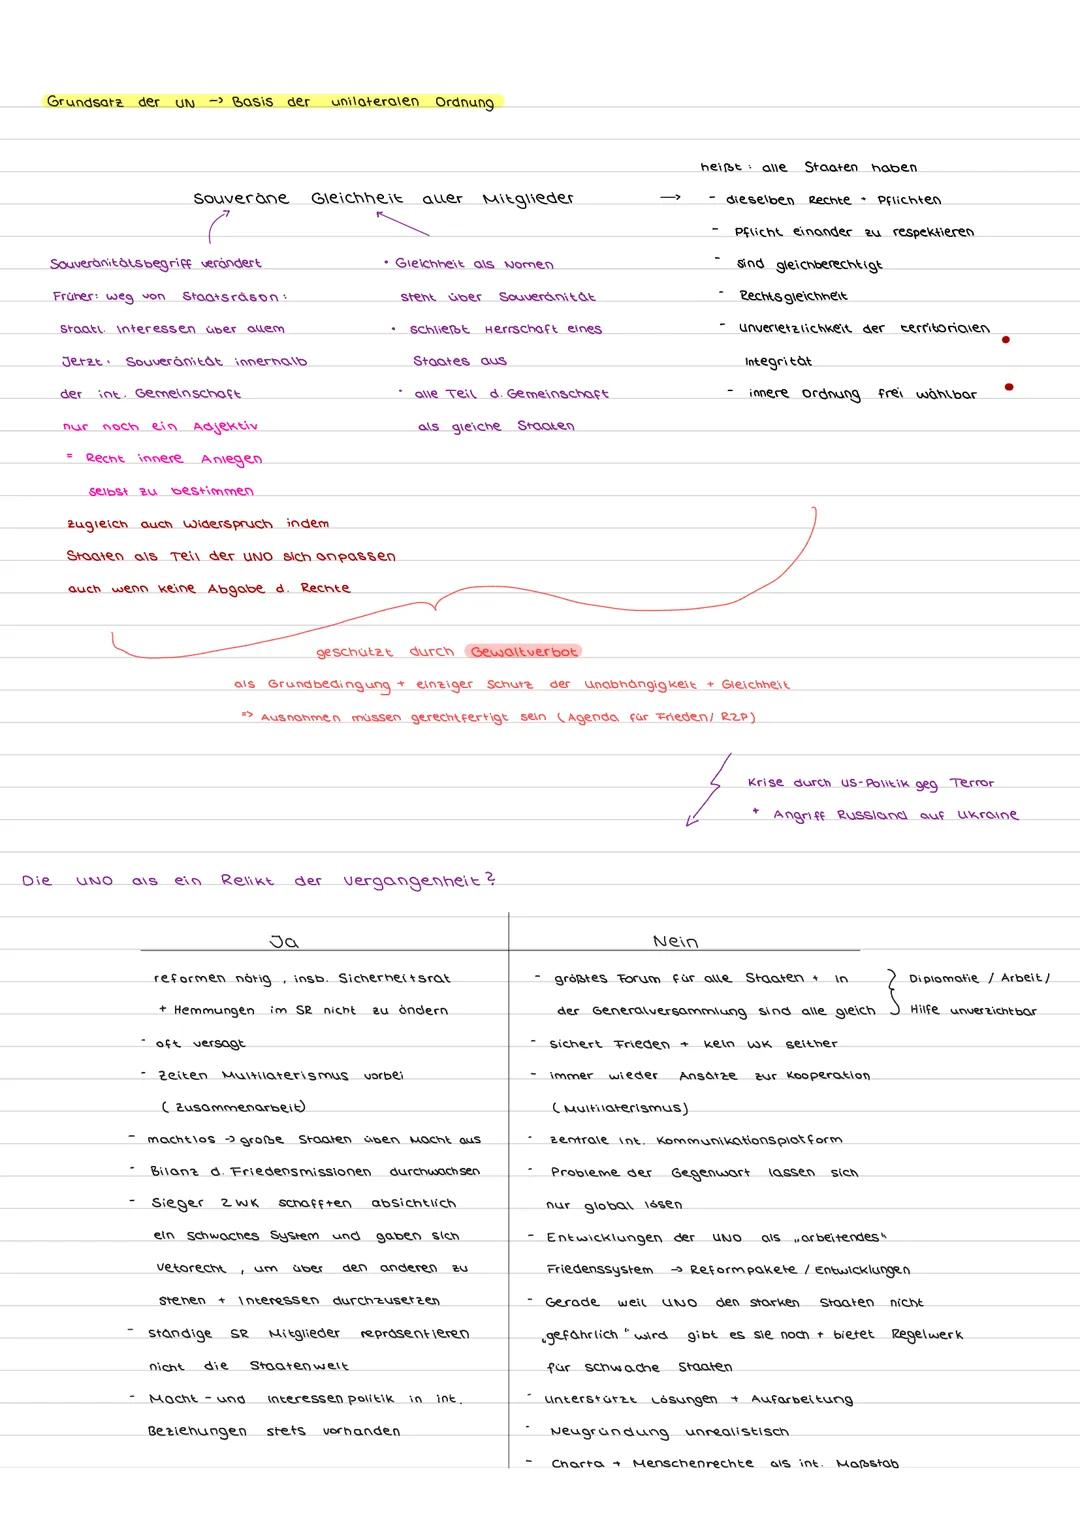 Grundsatz der UN -> Basis der unilateralen Ordnung
Souveräne Gleichheit aller Mitglieder ->
heißt: alle Staaten haben
- dieselben Rechte + Pflichten
- Pflicht einander zu respektieren
- sind gleichberechtigt
- Rechtsgleichheit
- Unverletzlichkeit der territorialen
Integrität
- innere Ordnung frei wählbar
Souveränitätsbegriff verändert
Früher: weg von Staatsräson:
Staatl. Interessen über allem
Jetzt: Souveränität innerhalb
der int. Gemeinschaft
nur noch ein Adjektiv
= Recht innere Anlegen
selbst zu bestimmen
zugleich auch Widerspruch indem
Staaten als Teil der UNO sich anpassen
auch wenn keine Abgabe d. Rechte
• Gleichheit als Nomen
steht über Souveränität
• schließt Herrschaft eines
Staates aus
• alle Teil d. Gemeinschaft
als gleiche Staaten
geschützt durch Gewaltverbot
als Grundbedingung + einziger Schutz der Unabhängigkeit + Gleichheit
=> Ausnahmen müssen gerechtfertigt sein (Agenda für Frieden/ R2P)
Krise durch US-Politik geg Terror
+ Angriff Russland auf Ukraine
Die UNO als ein Relikt der Vergangenheit?
Ja
reformen nötig, insb. Sicherheitsrat
+ Hemmungen im SR nicht zu ändern
- oft versagt
- Zeiten Multilaterismus vorbei
(Zusammenarbeit)
- machtlos -> große Staaten üben Macht aus
- Bilanz d. Friedensmissionen durchwachsen
- Sieger 2WK schafften absichtlich
ein schwaches System und gaben sich
Vetorecht, um über den anderen zu
stehen + Interessen durchzusetzen
- ständige SR Mitglieder repräsentieren
nicht die Staatenwelt
- Macht-und Interessenpolitik in int.
Beziehungen stets vorhanden
Nein
- größtes Forum für alle Staaten + in
der Generalversammlung sind alle gleich
} Diplomatie / Arbeit/
Hilfe unverzichtbar
- sichert Frieden + kein WK seither
- immer wieder Ansätze zur Kooperation
(Multilaterismus)
- zentrale int. Kommunikationsplatform
- Probleme der Gegenwart lassen sich
nur global lösen
- Entwicklungen der UNO als „arbeitendes"
Friedenssystem -> Reformpakete / Entwicklungen
- Gerade weil UNO den starken Staaten nicht
„gefährlich" wird gibt es sie noch + bietet Regelwerk
für schwache Staaten
- unterstützt Lösungen + Aufarbeitung
- Neugründung unrealistisch
- Charta + Menschenrechte als int. Maßstab